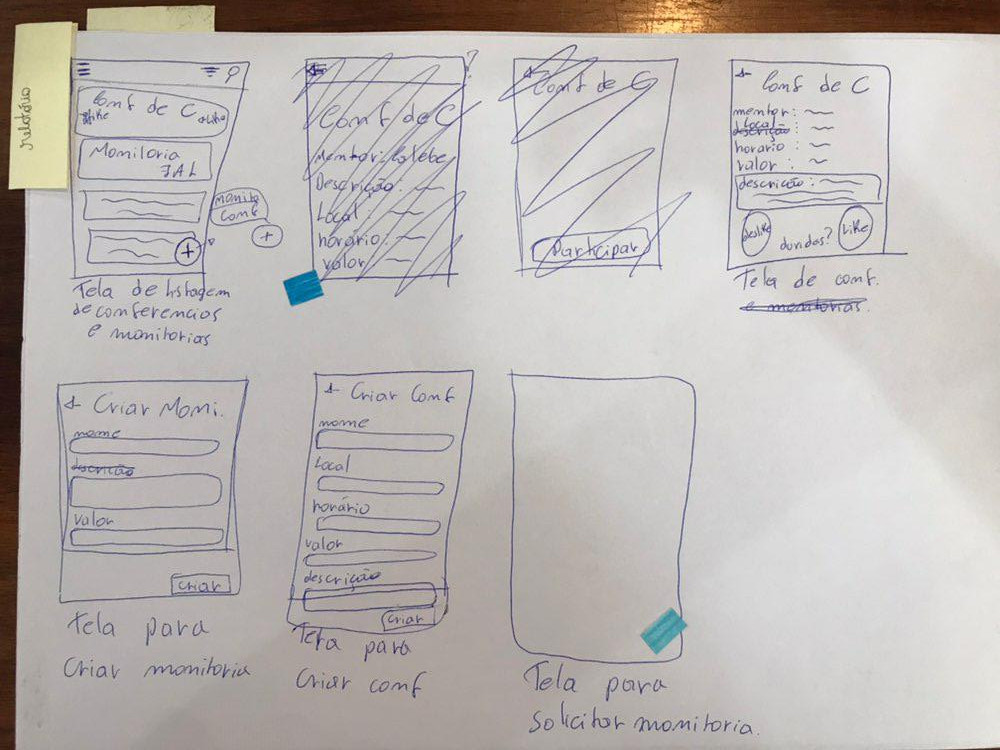 Relatório
Conf de C
dislike
Like
Monitoria
JAL
monito
Conf
+
+
Tela de listagem
de conferencias
e monitorias
?
Conf de C
Mentor: Calebe
Descrição:
Local:
horário:
valor:
Conf de C
Participar
Conf de C
mentor:
Local:
descrição
horario:
valor:
descrição:
deslike
duvidas?
Like
Tela de conf.
e monitorias.
Criar Moni.
nome
descrição
valor
criar
Tela para
Criar monitoria
Criar Conf
nome
Local
horário
valor
descrição
criar
Tela para
Criar conf
Tela para
solicitar monitoria.